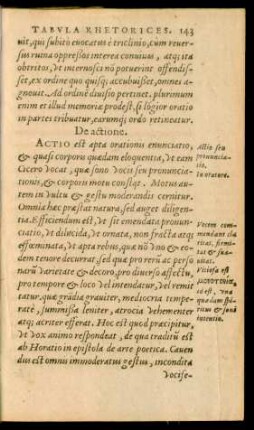 TABVLA RHETORICES. 143
uit, qui subitò euocatus è triclinio, cum reuer-
sus ruina oppressos interea conuiuas, atq; ita
obtritos, vt internosci nõ potuerint offendis-
set, ex ordine quo quisq; accubuisset, omnes a-
gnouit. Ad ordinẽ diuisio pertinet, plurimum
enim et illud memoriæ prodest, si lõgior oratio
in partes tribuatur, earumq́; ordo retineatur.
De actione.
ACTIO est apta orationis enunciatio,
& quasi corporis quædam eloquentia, vt eam
Cicero vocat, quæ sono vocis seu pronunciati-
onis, & corporis motu constat. Motus autem
in vultu & gestu moderandis cernitur.
Omnia hæc præstat natura, sed auget diligen-
tia. Efficiendum est, vt sit emendata pronun-
ciatio, vt dilucida, vt ornata, non fracta atq;
effeminata, vt apta rebus, quæ nõ vno & eo-
dem tenore decurrat, sed quæ pro rerũ ac perso
narũ varietate & decoro, pro diuerso affectu,
pro tempore & loco vel intendatur, vel remit
tatur. quæ grãdia grauiter, mediocria tempe-
ratè, summissa leniter, atrocia vehementer
atq; acriter efferat. Hoc est quod præcipitur,
vt vox animo respondeat, de qua traditũ est
ab Horatio in epistola de arte poetica. Cauen
dus est omnis immoderatus gestus, incondita
vocife-
Actio seu
pronunciatio
in oratore.
Vocem com-
mendant cla
ritas, firmi-
tas & sua-
uitas.
Vitiosa est
id est, vna
quædam spi-
ritus & soni
intentio.